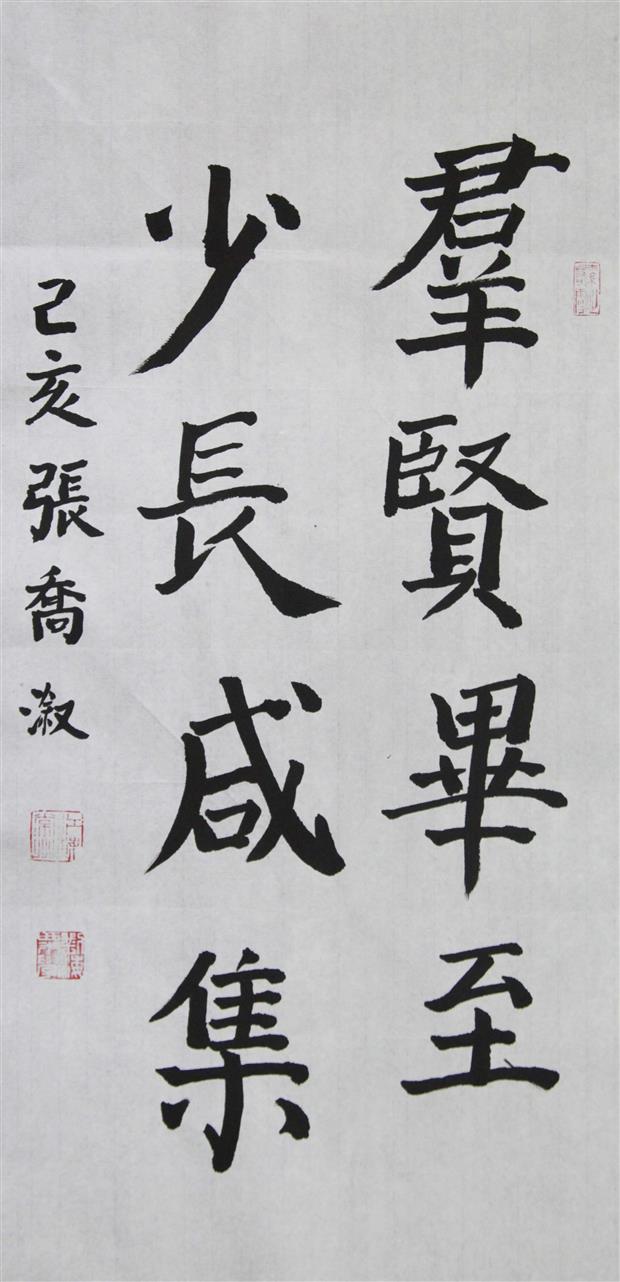 羣賢畢至
少長咸集
己亥張喬淑